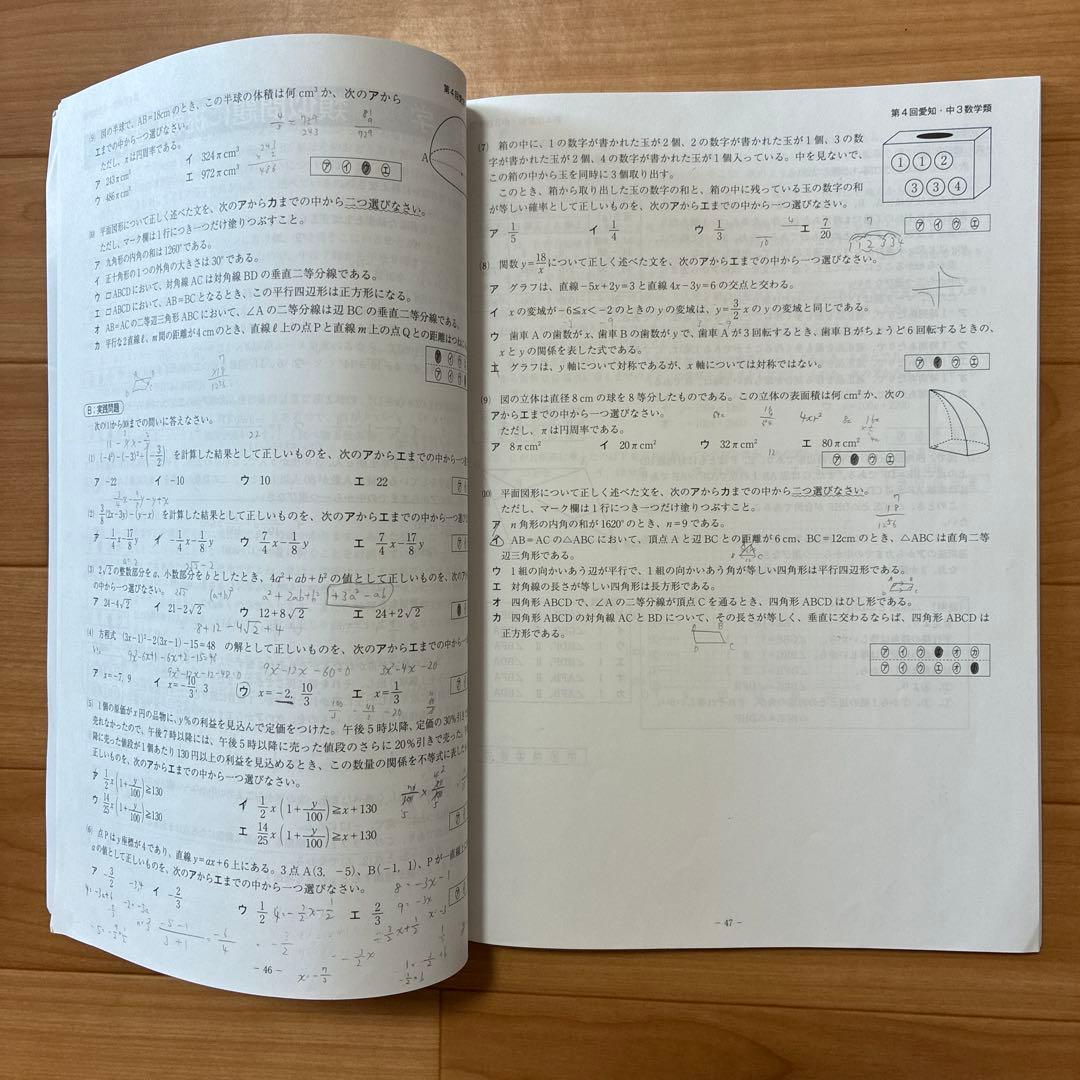 第4回愛
(5) 図の半球で、AB=18cmのとき、この半球の体積は何cm³か、次のアから
エまでの中から一つ選びなさい。
ただし、πは円周率である。
ア 243πcm³ イ 324πcm³
ウ 486πcm³ エ 972πcm³
A
ア イ ウ エ
平面図形について正しく述べた文を、次のアからカまでの中から二つ選びなさい。
ただし、マーク欄は1行につき一つだけ塗りつぶすこと。
ア 九角形の内角の和は1260°である。
イ 正十角形の1つの外角の大きさは30°である。
ウ □ABCDにおいて、対角線ACは対角線BDの垂直二等分線である。
エ □ABCDにおいて、AB=BCとなるとき、この平行四辺形は正方形になる。
オ AB=ACの二等辺三角形ABCにおいて、∠Aの二等分線は辺BCの垂直二等分線である。
カ 平行な2直線ℓ、m間の距離が4cmのとき、直線ℓ上の点Pと直線m上の点Qとの距離はつねに
B:実践問題
次の(1)から(10)までの問いに答えなさい。
(1) (-4²)-(-3)²÷(-3/2) を計算した結果として正しいものを、次のアからエまでの中から一つ
ア -22 イ -10 ウ 10 エ 22
(2) 3/8(2x-3y)-(y-x) を計算した結果として正しいものを、次のアからエまでの中から一
ア -1/4x-17/8y イ -1/4x-1/8y ウ 7/4x-1/8y エ 7/4x-17/8y
(3) 2√2の整数部分をa、小数部分をbとしたとき、4a²+ab+b²の値として正しいものを、次のア
の中から一つ選びなさい。
(a+b)² a²+2ab+b² +3a²-ab
ア 24-4√2 イ 21-2√2 ウ 12+8√2 エ 24+2√2
8+12-4√2+4
(4) 方程式 (3x-1)²-2(3x-1)-15=48 の解として正しいものを、次のアからエまでの中から一
9x²-6x+1-6x+2-15=48
9x²-12x-60=0 3x²-4x-20
ア x=-7, 9 イ x=-10/3, 3 ウ x=-2, 10/3 エ x=1/3
(5) 1個の原価がx円の品物に、y%の利益を見込んで定価をつけた。午後5時以降、定価の30%引きで
売れなかったので、午後7時以降には、午後5時以降に売った値段のさらに20%引きで売った。
降に売った値段が1個あたり130円以上の利益を見込めるとき、この数量の関係を不等式に表した
正しいものを、次のアからエまでの中から一つ選びなさい。
ア 1/2x(1+y/100)≧130 イ 1/2x(1+y/100)≧x+130
ウ 14/25x(1+y/100)≧130 エ 14/25x(1+y/100)≧x+130
(6) 点Pはy座標が4であり、直線y=ax+6上にある。3点A(3, -5)、B(-1, 1)、Pが一直線上
aの値として正しいものを、次のアからエまでの中から一つ選びなさい。
ア -3/2 イ -2/3 ウ 1/2 エ 2/3
8=-3x-1
9=-3x
x=-3
- 46 -
第4回愛知・中3数学類
(7) 箱の中に、1の数字が書かれた玉が2個、2の数字が書かれた玉が1個、3の数
字が書かれた玉が2個、4の数字が書かれた玉が1個入っている。中を見ないで、
この箱の中から玉を同時に3個取り出す。
このとき、箱から取り出した玉の数字の和と、箱の中に残っている玉の数字の和
が等しい確率として正しいものを、次のアからエまでの中から一つ選びなさい。
① ① ②
③ ③ ④
ア 1/5 イ 1/4 ウ 1/3 エ 7/20
ア イ ウ エ
(8) 関数y=18/xについて正しく述べた文を、次のアからエまでの中から一つ選びなさい。
ア グラフは、直線-5x+2y=3と直線4x-3y=6の交点と交わる。
イ xの変域が-6≦x<-2のときのyの変域は、y=3/2xのyの変域と同じである。
ウ 歯車Aの歯数がx、歯車Bの歯数がyで、歯車Aが3回転するとき、歯車Bがちょうど6回転するときの、
xとyの関係を表した式である。
エ グラフは、y軸について対称であるが、x軸については対称ではない。
ア ウ エ
(9) 図の立体は直径8cmの球を8等分したものである。この立体の表面積は何cm²か、次の
アからエまでの中から一つ選びなさい。
ただし、πは円周率である。
ア 8πcm² イ 20πcm² ウ 32πcm² エ 80πcm²
12
ア ウ エ
(10) 平面図形について正しく述べた文を、次のアからカまでの中から二つ選びなさい。
ただし、マーク欄は1行につき一つだけ塗りつぶすこと。
ア n角形の内角の和が1620°のとき、n=9である。
イ AB=ACの△ABCにおいて、頂点Aと辺BCとの距離が6cm、BC=12cmのとき、△ABCは直角二等
辺三角形である。
ウ 1組の向かいあう辺が平行で、1組の向かいあう角が等しい四角形は平行四辺形である。
エ 対角線の長さが等しい四角形は長方形である。
オ 四角形ABCDで、∠Aの二等分線が頂点Cを通るとき、四角形ABCDはひし形である。
カ 四角形ABCDの対角線ACとBDについて、その長さが等しく、垂直に交わるならば、四角形ABCDは
正方形である。
ア イ ウ オ カ
ア イ ウ エ オ
- 47 -